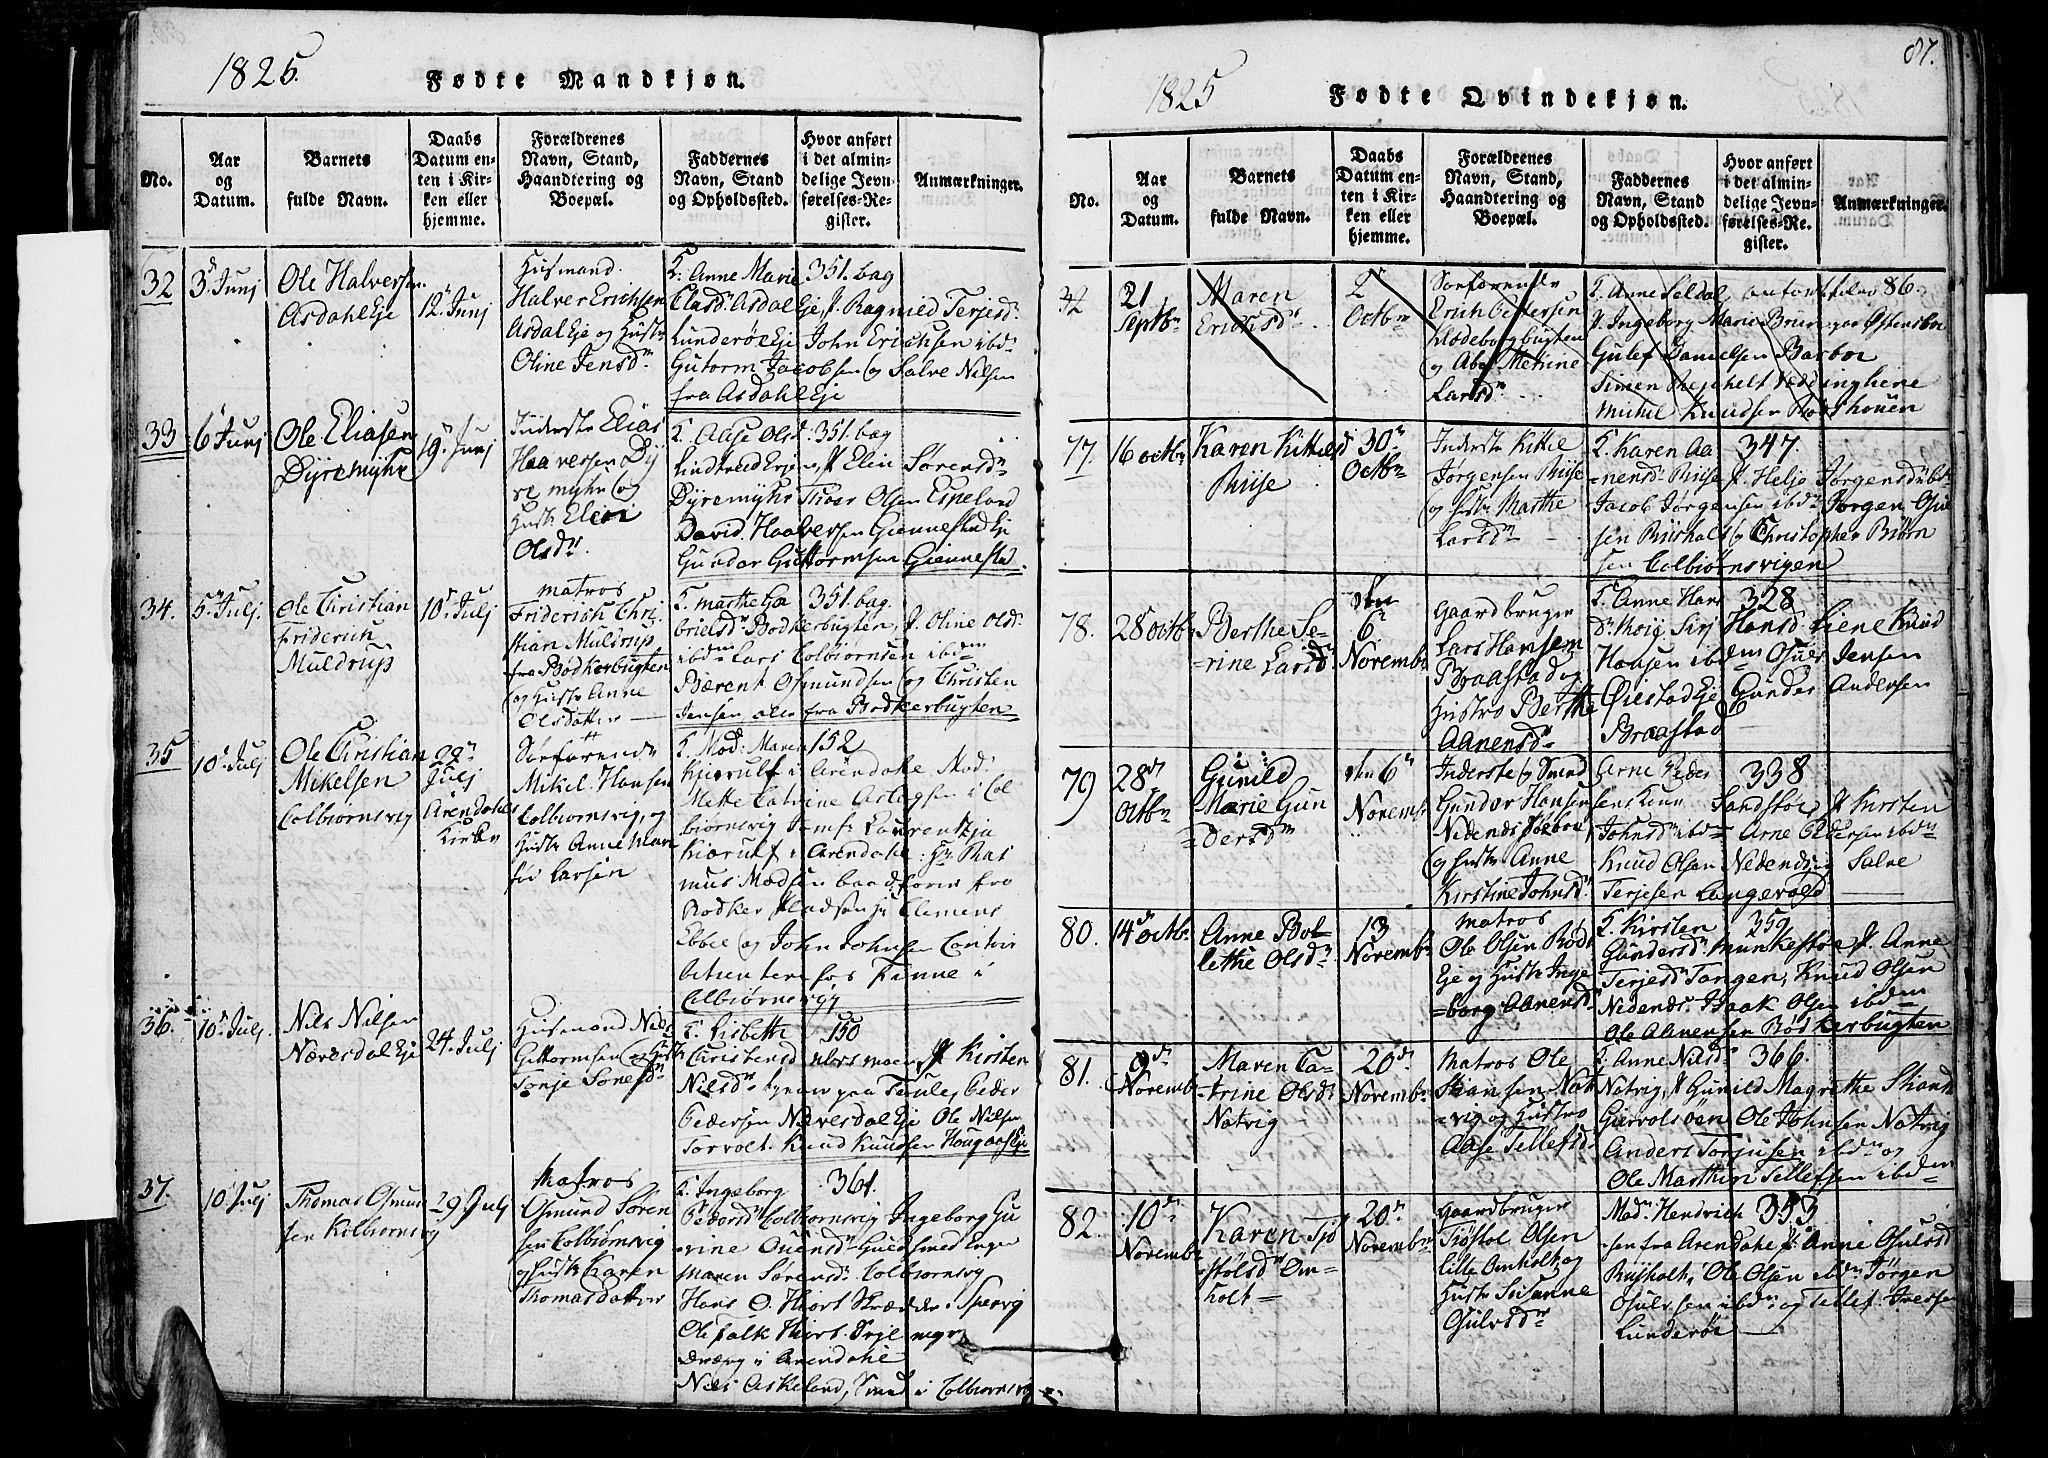 1825.
Fødte Mandkjøn.
No.
Aar og Datum.
Barnets fulde Navn.
Daabs Datum enten i Kirken eller hjemme.
Forældrenes Navn, Stand, Haandtering og Boepæl.
Faddernes Navn, Stand og Opholdssted.
Hvor anført i det almindelige Jevnførelses-Register.
Anmærkninger.
32
3d Junj
Ole Halversen
Asdahl Eje
12t Junj
Husmand
Halver Erichsen
Asdal Eje og Hustr
Oline Jensdr
F: Anne Marie 351. bag
Clasdr Asdal Eje, J. Ragnild Terjesdr
Lunderøe Eje John Erichsen ibdm
Gutorm Jacobsen og Salve Nilsen
fra Asdahl Eje
33
6t Junj
Ole Eliasen
Dyremyhr
19de Junj
Inderste Elias
Haaversen Dy
re myhr og
Hustr Elen
Olsdr
F. Aase Olsd 351. bag
J Elen Sørensdr
Dyremyhr Olsen Espeland
David Haaversen Giennestad Ej
Gundar Guttormsen Giennestad.
34.
5t Julj
Ole Christian
Friderich
Muldrup
10d Julj
Matros
Friderich Chri
stian Muldrup
fra Bødkerbugten
og Hustr Anne
Olsdatter
F. Marthe Ga 351. bag.
brielsdr Bødkerbugten, J. Oline Olsdr
ibdm Lars Colbiornsen ibdm
Bærent Osmundsen og Christen
Jensen alle fra Bødkerbugten
35
10d Julj
Ole Christian
Mikelsen
Colbiornsvig
29de
Julj
Arendahls
Kirke
Sørfarende
Mikel Hansen
Colbiornsvig, og
Hustr Anne Mar
Larsen
F. Mad: Maren 152
Kierulf i Arendahl. Mad:
Mette Catrine Aslagsen i Col
biornsvig Jomfr Laurentzia
Kierulf i Arendahl. Hr Ras
mus Madsen
Bødker Madsen Clemens
Ebbe og John Johnsen Contoir
betienter hos Kinne i
Colbiornsvig
36.
10d Julj.
Nils Nilsen
Næresdal Eje
24. Julj
Husmand Nils
Gittormsen og Hustr
Tonje Sonesdr
F. Lisbeth 150
Christensd J Kirsten
Nilsdr Peder
Pedersen Næresdal Eje Ole Nilsen
Torvolt. Knud Knudsen Hougaas Eje
37.
10d Julj
Thomas Osmun
sen Kolbiornsvig
29 Julj
Matros
Osmund Sören
sen Colbiornsvig
og Hustr Karen
Thomasdatter
F. Ingeborg 361.
Pedersdr Colbiornsvig Ingeborg Gu
rine Ouensdr Guldsmed
Maren Sørensdr Colbiornsvig
Hans O. Hiort Skræder i Spervig
Ole Falk Hiort Sejlmager
dreng i Arendahl
Nils Askeland, Smed i Colbiornsvig
87.
1825
Fødte Qvindekjøn.
No.
Aar og Datum.
Barnets fulde Navn.
Daabs Datum enten i Kirken eller hjemme.
Forældrenes Navn, Stand, Haandtering og Boepæl.
Faddernes Navn, Stand og Opholdssted.
Hvor anført i det almindelige Jevnførelses-Register.
Anmærkninger.
32
21
Septbr
Maren
Erichsdr
2d
Octbr
Sørfarende
Erich Pettersen
Klødeborgbugten
og Abel Metrine
Larsdr
F. Anne Seldal, anført folio 86
J. Ingeborg Marie Brun
Gulef Danielsen Barboe
Simen
Michel Knudsen
77.
16 octbr
Karen Kittelsd
Riise
30te
Octbr
Inderste Kittel
Jørgensen Riise
og Hustr Marthe
Larsdr
F. Karen Aa 347.
nensdr Riise J Helje Jørgensd ibdm
Jacob Jørgensen ibdm Jørgen Osu
sen Riisholt og Christopher Biørn
sen Colbiørnsvigen
78.
28d octbr
Berthe Se
rine Larsd
den
6te
Novembr
Gaardbruger
Lars Hansen
Braastad og
Hustro Berthe
Aanensdr
F. Anne Hans 328
dr Sirj Hansd Liene Knud
Hansen ibdm Osuls Jensen
Øiestad Eje Gunder Andersen
Braastad
79
28d
Octbr
Gunild
Marie Gun
dersdr
den 6te
Novembr
Inderste og Smed
Gundar Hansen
Nidenæs Søeboe
og Hustr Anne
Kirstine Johnsdr
Arne Peder 338
sens Kone Sandstøe J Kirsten
Johnsdr ibdm Arne Pedersen ibdm
Knud Olsen Nedenæs og Salve
Terjesen Langevold
80.
14d octbr
Anne Bol
lethe Olsdr
13
Novembr
Matros
Ole Olsen Bød
Eje og Hustr Inge
borg Aanensdr
F. Kirsten 359
Gundersdr Munkestøe J. Anne
Terjesdr Tangen, Knud Olsen
Nedenæs. Isaak Olsen ibdm
Ole Aanensen Bødkerbugten
81.
9d
Novembr
Maren Ca
trine Olsdr
Natvig
20de
Novembr
Matros Ole
Hansen Nat
vig og Hustro
Aase Tellefsd
F. Anne Nilsdr 366.
Natvig, J Gunild Magrethe Strand
Gierrolsøen Ole Johnsen Natvig
Anders Torjusen ibdm og
Ole Marthin Tellefsen ibdm
82.
10de
Novembr
Karen Tjø
stølsdr Om
holt
20de
Novembr
Gaardbruger
Tjøstol Olsen
Lille Omholt, og
Hustr Susanne
Osulvsdr
Mad. Hendrich 353
sen fra Arendahl J. Anne Osulvsd
Riisholt, Ole Olsen ibdm Jørgen
Osulvsen ibdm og Tellef Iversen
Lunderøe